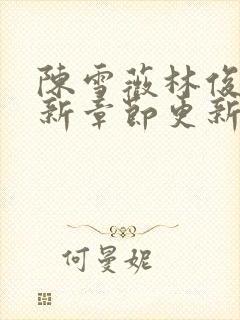 陳雪薇林俊
新章節更新
何曼妮